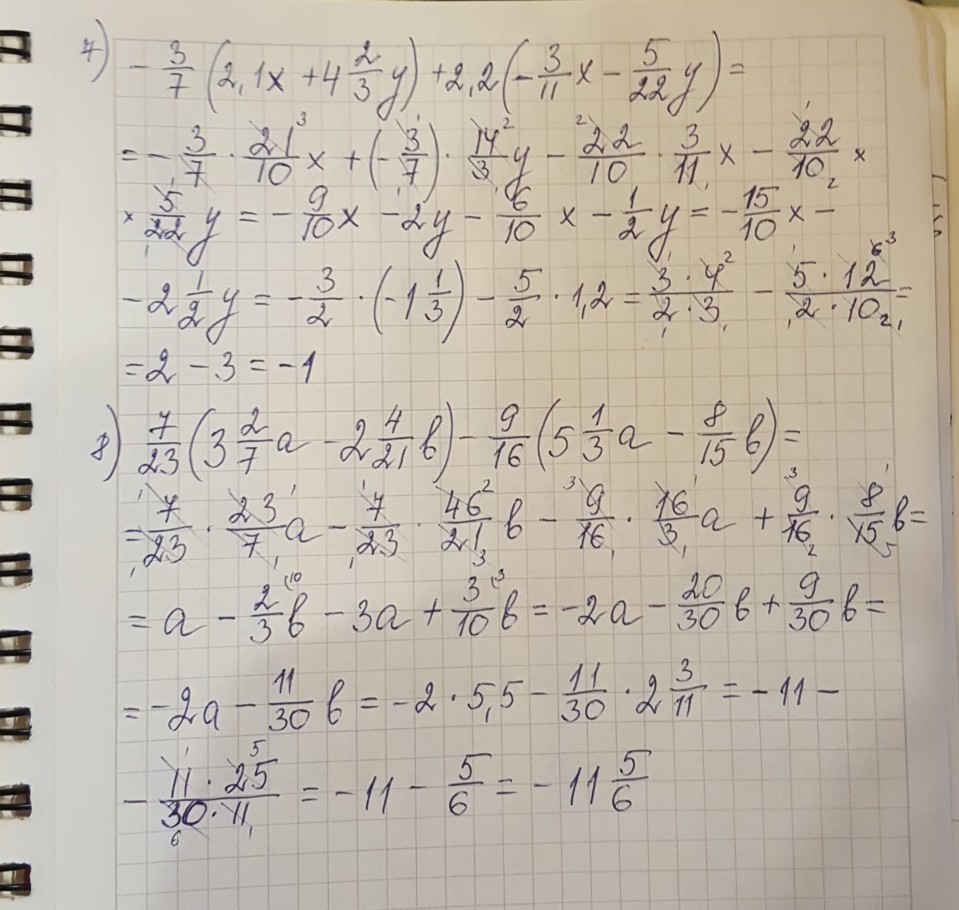 7) - 3/7 (2,1x + 4 2/3 y) + 2,2 (- 3/11 x - 5/22 y) =
= - 3/7 · 21/10 x + (- 3/7) · 14/3 y - 22/10 · 3/11 x - 22/10 ×
× 5/22 y = - 9/10 x - 2y - 6/10 x - 1/2 y = - 15/10 x -
- 2 1/2 y = - 3/2 · (-1 1/3) - 5/2 · 1,2 = 3·4/2·3 - 5·12/2·10 =
= 2 - 3 = -1
8) 7/23 (3 2/7 a - 2 4/21 b) - 9/16 (5 1/3 a - 8/15 b) =
= 7/23 · 23/7 a - 7/23 · 46/21 b - 9/16 · 16/3 a + 9/16 · 8/15 b =
= a - 2/3 b - 3a + 3/10 b = -2a - 20/30 b + 9/30 b =
= -2a - 11/30 b = -2 · 5,5 - 11/30 · 2 3/11 = -11 -
- 11·25/30·11 = -11 - 5/6 = -11 5/6